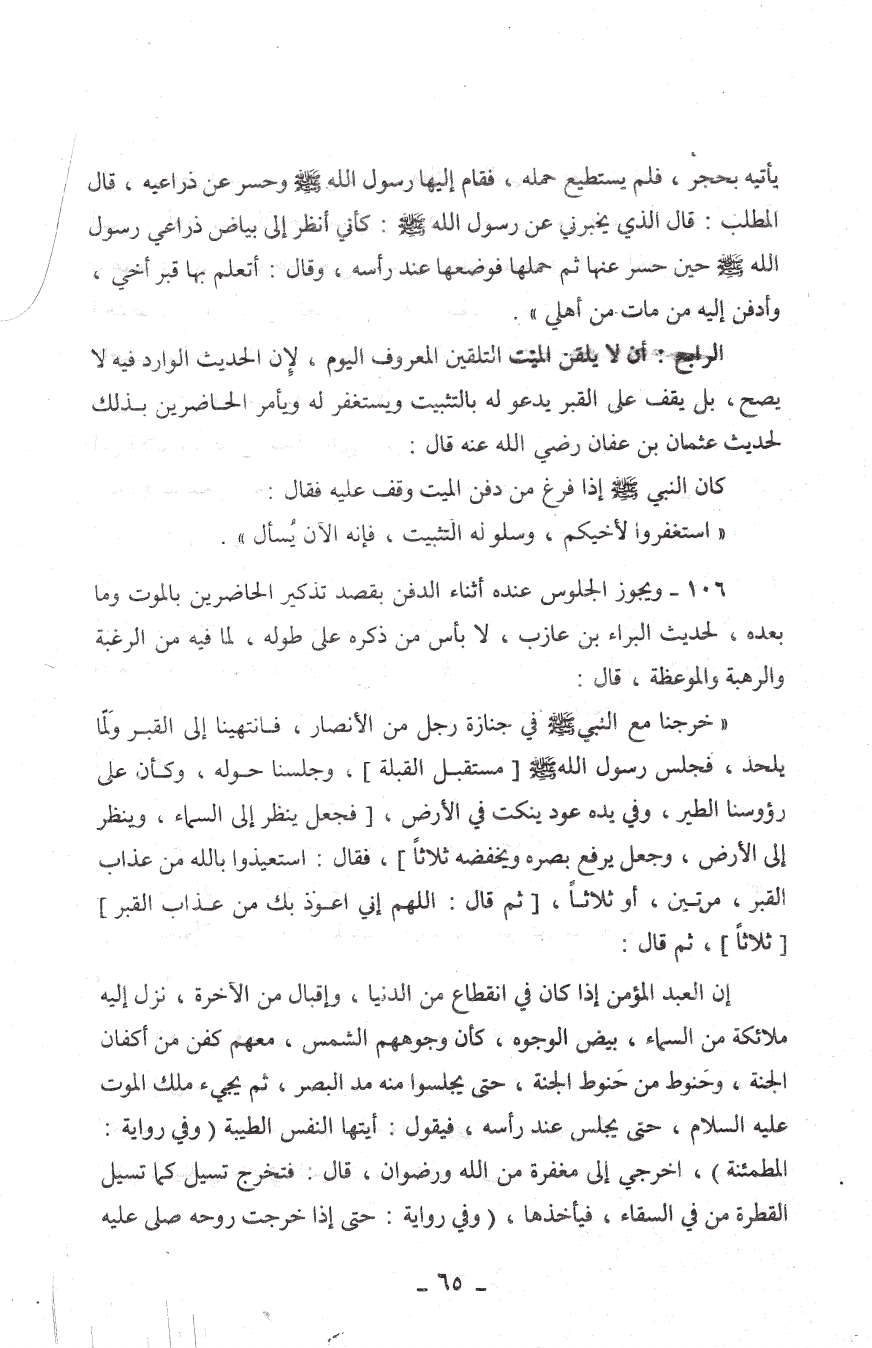 يأتيه بحجر ، فلم يستطيع حمله ، فقام إليها رسول الله ﷺ وحسر عن ذراعيه ، قال
المطلب : قال الذي يخبرني عن رسول الله ﷺ : كأني أنظر إلى بياض ذراعي رسول
الله ﷺ حين حسر عنها ثم حملها فوضعها عند رأسه ، وقال : أتعلم بها قبر أخي ،
وأدفن إليه من مات من أهلي » .
الرابع : أن لا يلقن الميت التلقين المعروف اليوم ، لإن الحديث الوارد فيه لا
يصح ، بل يقف على القبر يدعو له بالتثبيت ويستغفر له ويأمر الحاضرين بذلك
لحديث عثمان بن عفان رضي الله عنه قال :
كان النبي ﷺ إذا فرغ من دفن الميت وقف عليه فقال :
« استغفروا لأخيكم ، وسلو له التثبيت ، فإنه الآن يُسأل » .
١٠٦ ـ ويجوز الجلوس عنده أثناء الدفن بقصد تذكير الحاضرين بالموت وما
بعده ، لحديث البراء بن عازب ، لا بأس من ذكره على طوله ، لما فيه من الرغبة
والرهبة والموعظة ، قال :
« خرجنا مع النبي ﷺ في جنازة رجل من الأنصار ، فانتهينا إلى القبر ولَمّا
يلحد ، فجلس رسول الله ﷺ [ مستقبل القبلة ] ، وجلسنا حوله ، وكأن على
رؤوسنا الطير ، وفي يده عود ينكت في الأرض ، [ فجعل ينظر إلى السماء ، وينظر
إلى الأرض ، وجعل يرفع بصره ويخفضه ثلاثاً ] ، فقال : استعيذوا بالله من عذاب
القبر ، مرتين ، أو ثلاثاً ، [ ثم قال : اللهم إني اعوذ بك من عذاب القبر ]
[ ثلاثاً ] ، ثم قال :
إن العبد المؤمن إذا كان في انقطاع من الدنيا ، وإقبال من الآخرة ، نزل إليه
ملائكة من السماء ، بيض الوجوه ، كأن وجوههم الشمس ، معهم كفن من أكفان
الجنة ، وحَنوط من حَنوط الجنة ، حتى يجلسوا منه مد البصر ، ثم يجيء ملك الموت
عليه السلام ، حتى يجلس عند رأسه ، فيقول : أيتها النفس الطيبة ( وفي رواية :
المطمئنة ) ، اخرجي إلى مغفرة من الله ورضوان ، قال : فتخرج تسيل كما تسيل
القطرة من في السقاء ، فيأخذها ، ( وفي رواية : حتى إذا خرجت روحه صلى عليه
ـ ٦٥ ـ